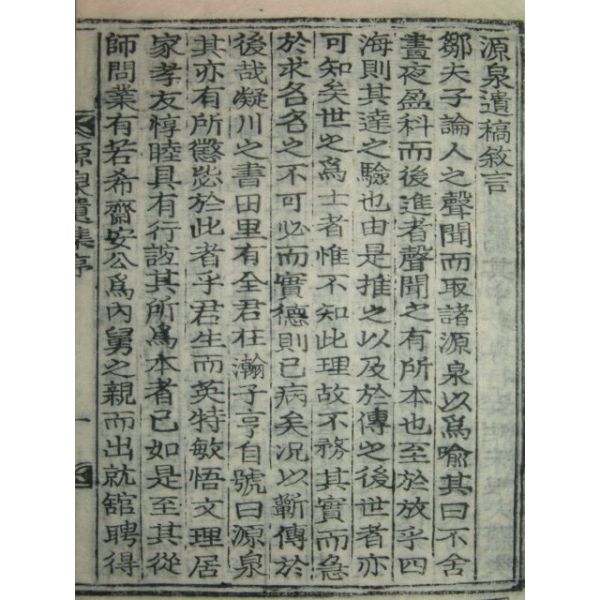 源泉遺稿敘言
鄒夫子論人之聲聞而取諸源泉以爲喩其曰不舍
晝夜盈科而後進者聲聞之有所本也至於放乎四
海則其達之驗也由是推之以及於傳之後世者亦
可知矣世之爲士者惟不知此理故不務其實而急
於求名名之不可必而實德則已病矣況以蘄傳於
後哉凝川之書田里有全君在瀚子亨自號曰源泉
其亦有所懲毖於此者乎君生而英特敏悟文理居
家孝友惇睦具有行誼其所爲本者已如是至其從
師問業有若希齋安公爲內舅之親而出就舘聘得
源泉遺集序
一